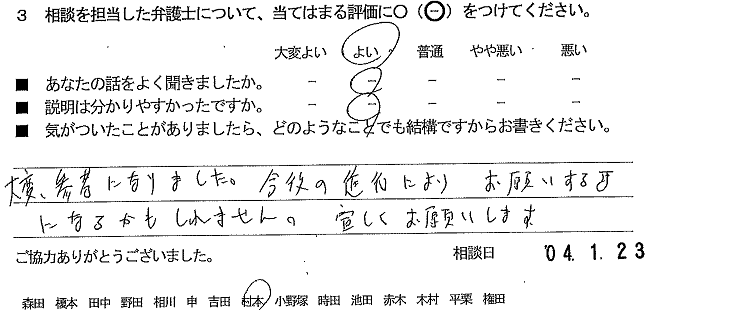 3 相談を担当した弁護士について、当てはまる評価に○(⊖)をつけてください。
大変よい よい 普通 やや悪い 悪い
■ あなたの話をよく聞きましたか。 － － － － －
■ 説明は分かりやすかったですか。 － － － － －
■ 気がついたことがありましたら、どのようなことでも結構ですからお書きください。
大変、参考になりました。今後の進行により お願いする
になるかもしれません。 宜しくお願いします
ご協力ありがとうございました。 相談日 '04.1.23
森田 榎本 田中 野田 相川 申 吉田 村本 小野塚 時田 池田 赤木 木村 平栗 権田